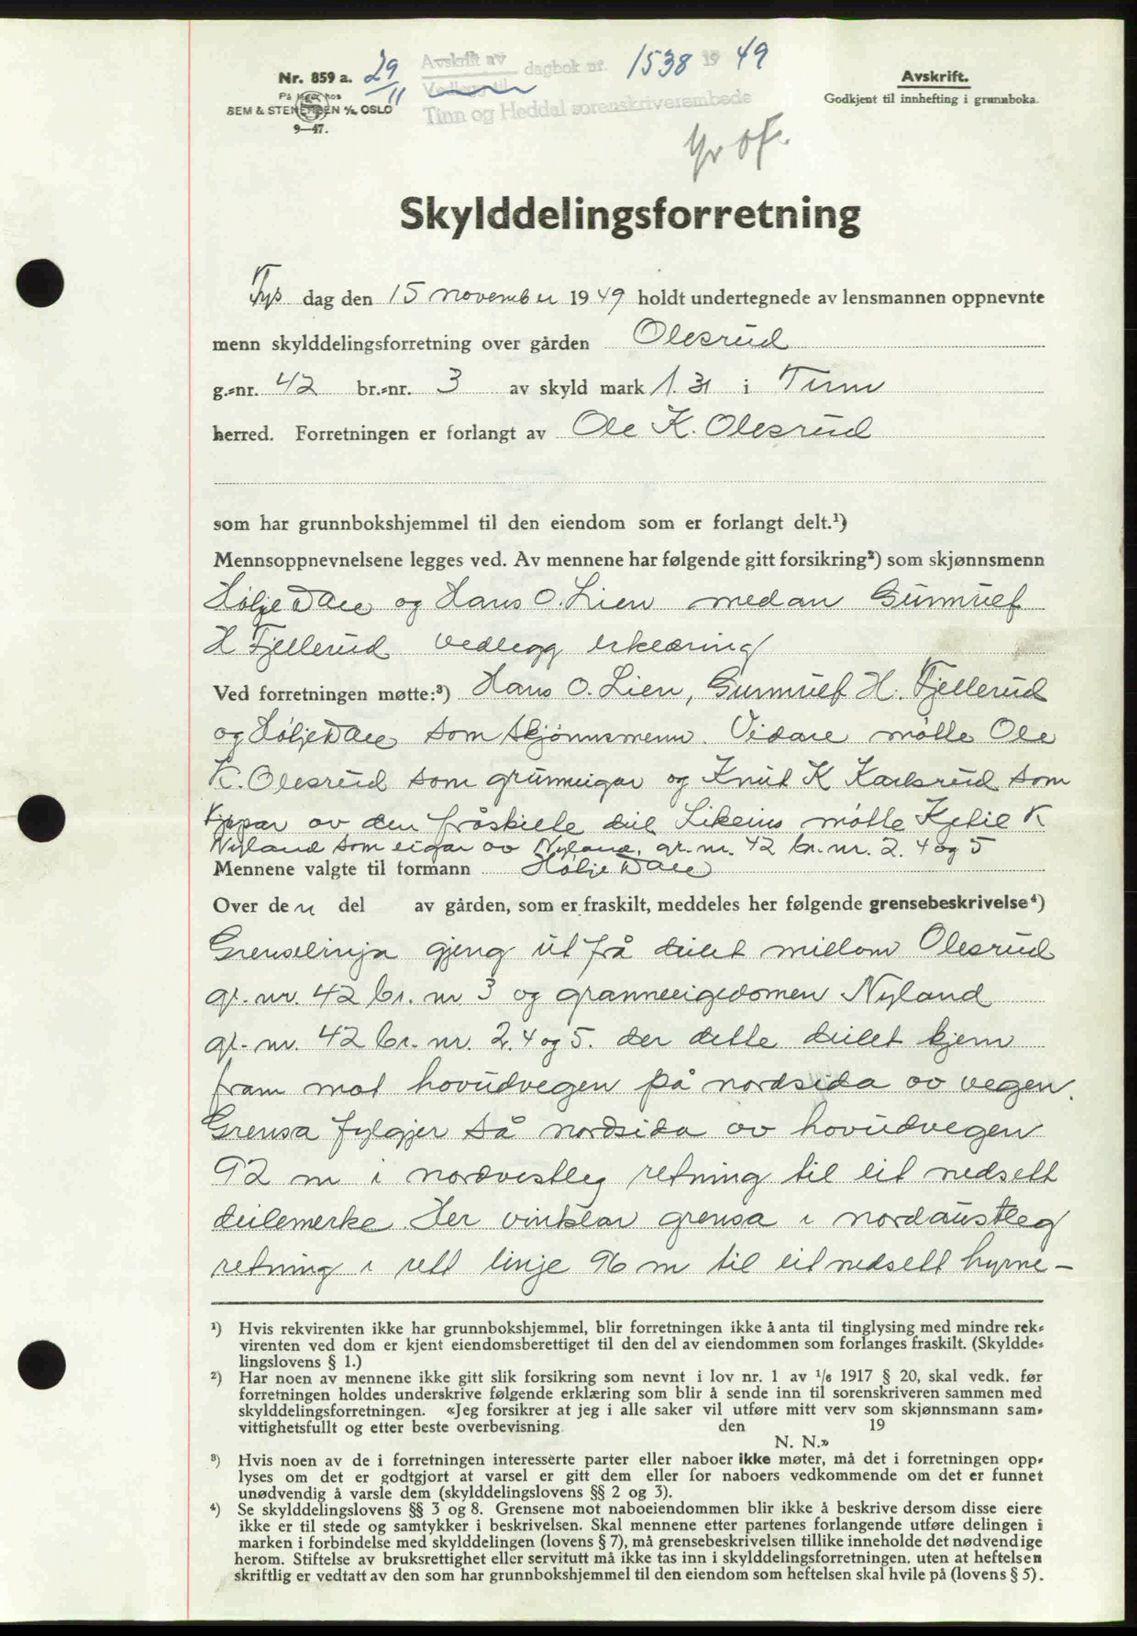 Nr. 859 a. 29/11
På lager hos
SEM & STENERSEN A/S, OSLO
9—47.
Avskrift av dagbok nr. 1538 19 49
Vedlegg til
Tinn og Heddal sorenskriverembede
Avskrift.
Godkjent til innhefting i grunnboka.
Skylddelingsforretning
Tys dag den 15 november 1949 holdt undertegnede av lensmannen oppnevnte
menn skylddelingsforretning over gården Olesrud
g.-nr. 42 br.-nr. 3 av skyld mark 1.31 i Tinn
herred. Forretningen er forlangt av Ole K. Olesrud
som har grunnbokshjemmel til den eiendom som er forlangt delt.¹)
Mennsoppnevnelsene legges ved. Av mennene har følgende gitt forsikring²) som skjønnsmenn
Hølje Dale og Hans O. Lien medan Gunnulf
H Fjellerud vedlegg erklæring
Ved forretningen møtte:³) Hans O. Lien, Gunnulf H. Fjellerud
og Hølje Dale som skjønnsmenn. Vidare møtte Ole
K. Olesrud som grunneigar og Knut K Karlsrud som
Kjøpar av den fråskilte deil Likeins møtte Kjetil K
Nyland som eigar av Nyland, gr. nr. 42 br. nr. 2. 4 og 5
Mennene valgte til formann Hølje Dale
Over den del av gården, som er fraskilt, meddeles her følgende grensebeskrivelse⁴)
Grenselinja gjeng ut frå deilet millom Olesrud
gr. nr. 42 br. nr 3 og granneeigedomen Nyland
gr. nr. 42 br. nr. 2. 4 og 5. der dette deilet kjem
fram mot hovudvegen på nordsida av vegen.
Grensa fylgjer så nordsida av hovudvegen
92 m i nordvestleg retning til eit nedsett
deilemerke Her vinklar grensa i nordaustleg
retning i rett linje 96 m til eit nedsett hyrne-
¹) Hvis rekvirenten ikke har grunnbokshjemmel, blir forretningen ikke å anta til tinglysing med mindre rek-
virenten ved dom er kjent eiendomsberettiget til den del av eiendommen som forlanges fraskilt. (Skyldde-
lingslovens § 1.)
²) Har noen av mennene ikke gitt slik forsikring som nevnt i lov nr. 1 av ¹/₆ 1917 § 20, skal vedk. før
forretningen holdes underskrive følgende erklæring som blir å sende inn til sorenskriveren sammen med
skylddelingsforretningen. «Jeg forsikrer at jeg i alle saker vil utføre mitt verv som skjønnsmann sam-
vittighetsfullt og etter beste overbevisning. den 19
N. N.»
³) Hvis noen av de i forretningen interesserte parter eller naboer ikke møter, må det i forretningen opp-
lyses om det er godtgjort at varsel er gitt dem eller for naboers vedkommende om det er funnet
unødvendig å varsle dem (skylddelingslovens §§ 2 og 3).
⁴) Se skylddelingslovens §§ 3 og 8. Grensene mot naboeiendommen blir ikke å beskrive dersom disse eiere
ikke er til stede og samtykker i beskrivelsen. Skal mennene etter partenes forlangende utføre delingen i
marken i forbindelse med skylddelingen (lovens § 7), må grensebeskrivelsen tillike inneholde det nødvendige
herom. Stiftelse av bruksrettighet eller servitutt må ikke tas inn i skylddelingsforretningen, uten at heftelsen
skriftlig er vedtatt av den som har grunnbokshjemmel til den eiendom som heftelsen skal hvile på (lovens § 5).